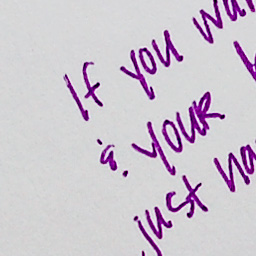 If you wan
& your
just